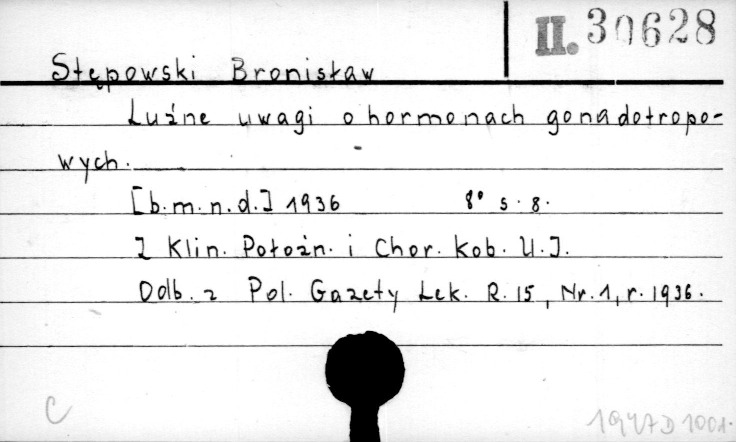 II. 30628
Stępowski Bronisław
Luźne uwagi o hormonach gonadotropo-
wych.
[b.m.n.d.] 1936 8° s. 8.
Z Klin. Położn. i Chor. kob. U.J.
Odb. z Pol. Gazety Lek. R. 15, Nr. 1, r. 1936.
C
1947 D 1001.